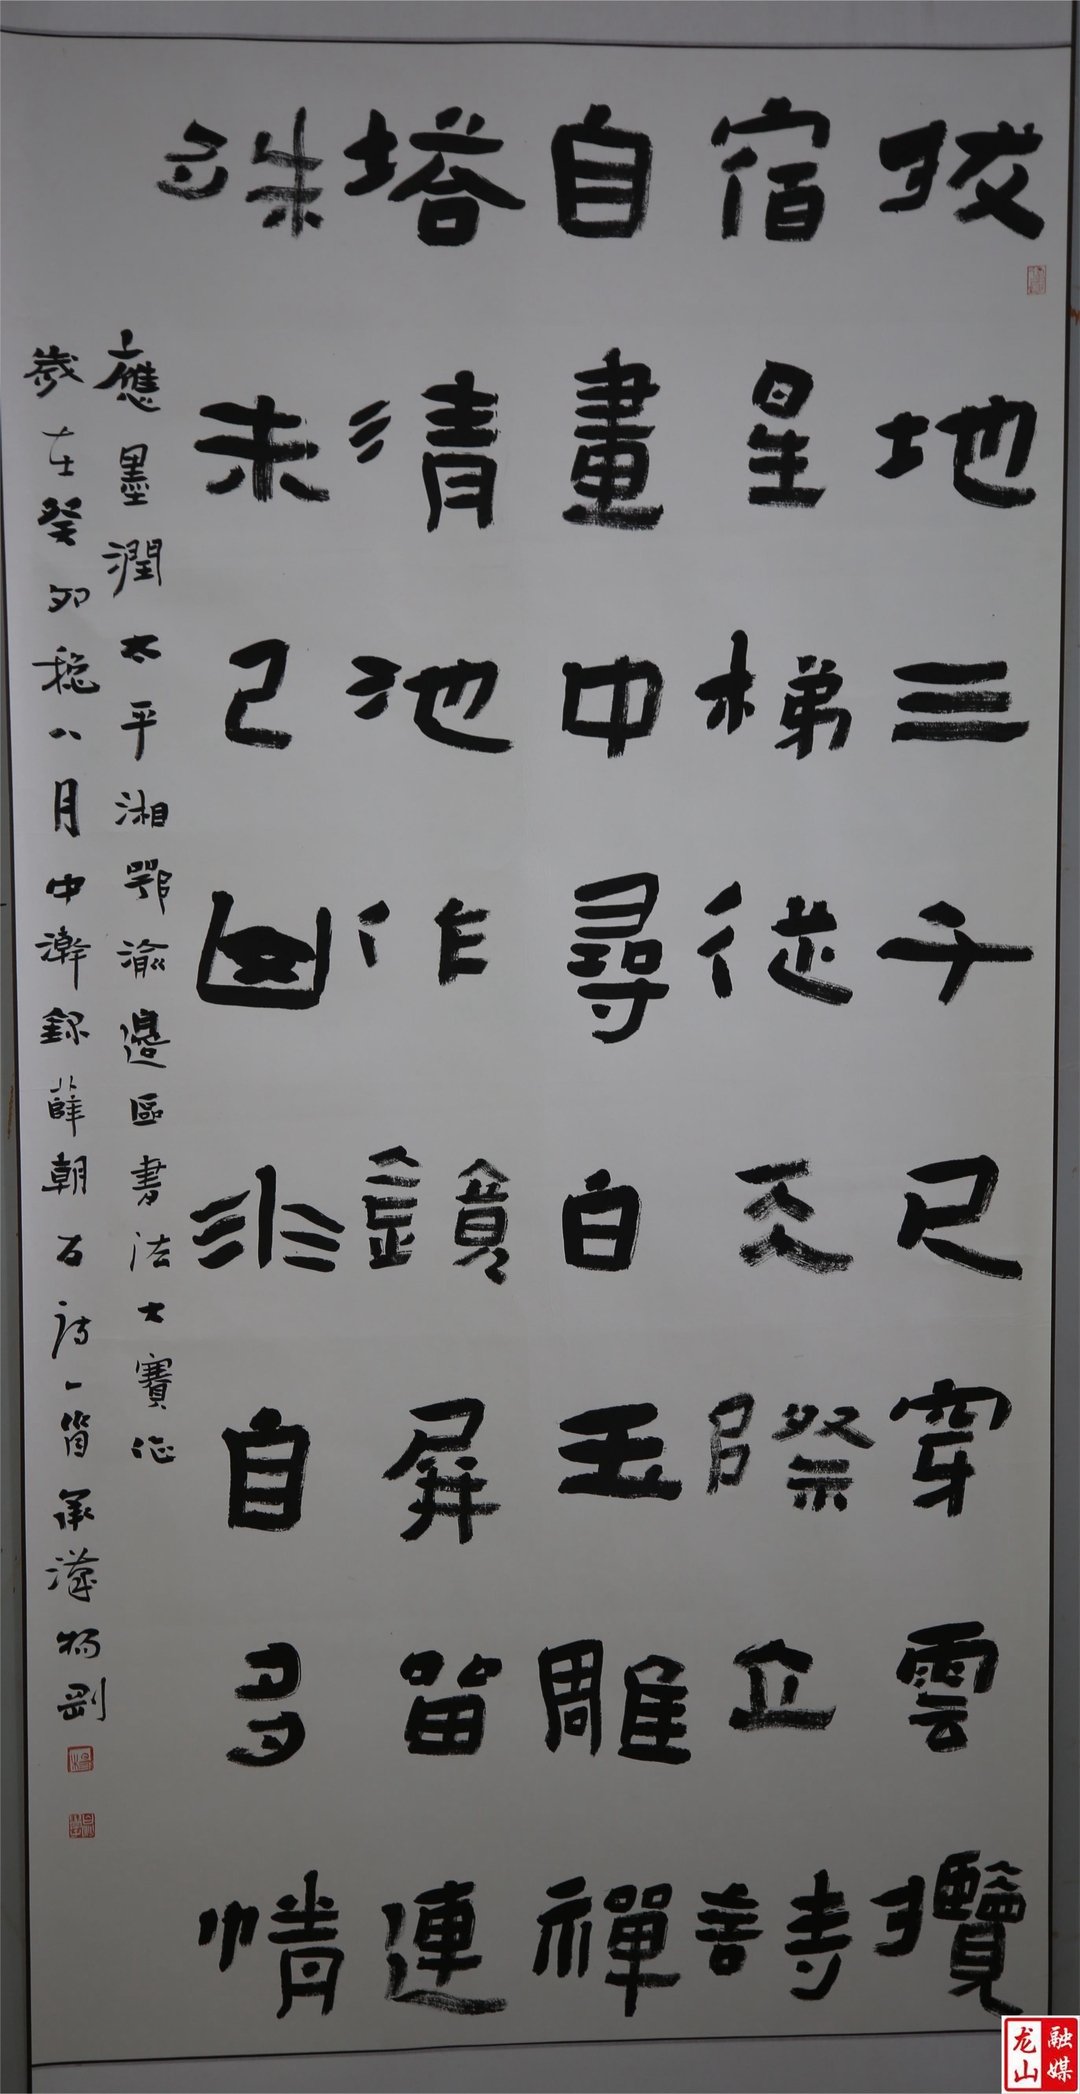 拔地三千尺穿雲攬
宿星梯從天際立詩
自畫中尋白玉雕禪
塔清池作鏡屏留連
殊未已非自多情
應墨潤太平湘鄂渝邊區書法大賽作
歲在癸卯穐八月中澣錄薛朝石詩一首承漢楊剛
龙山融媒